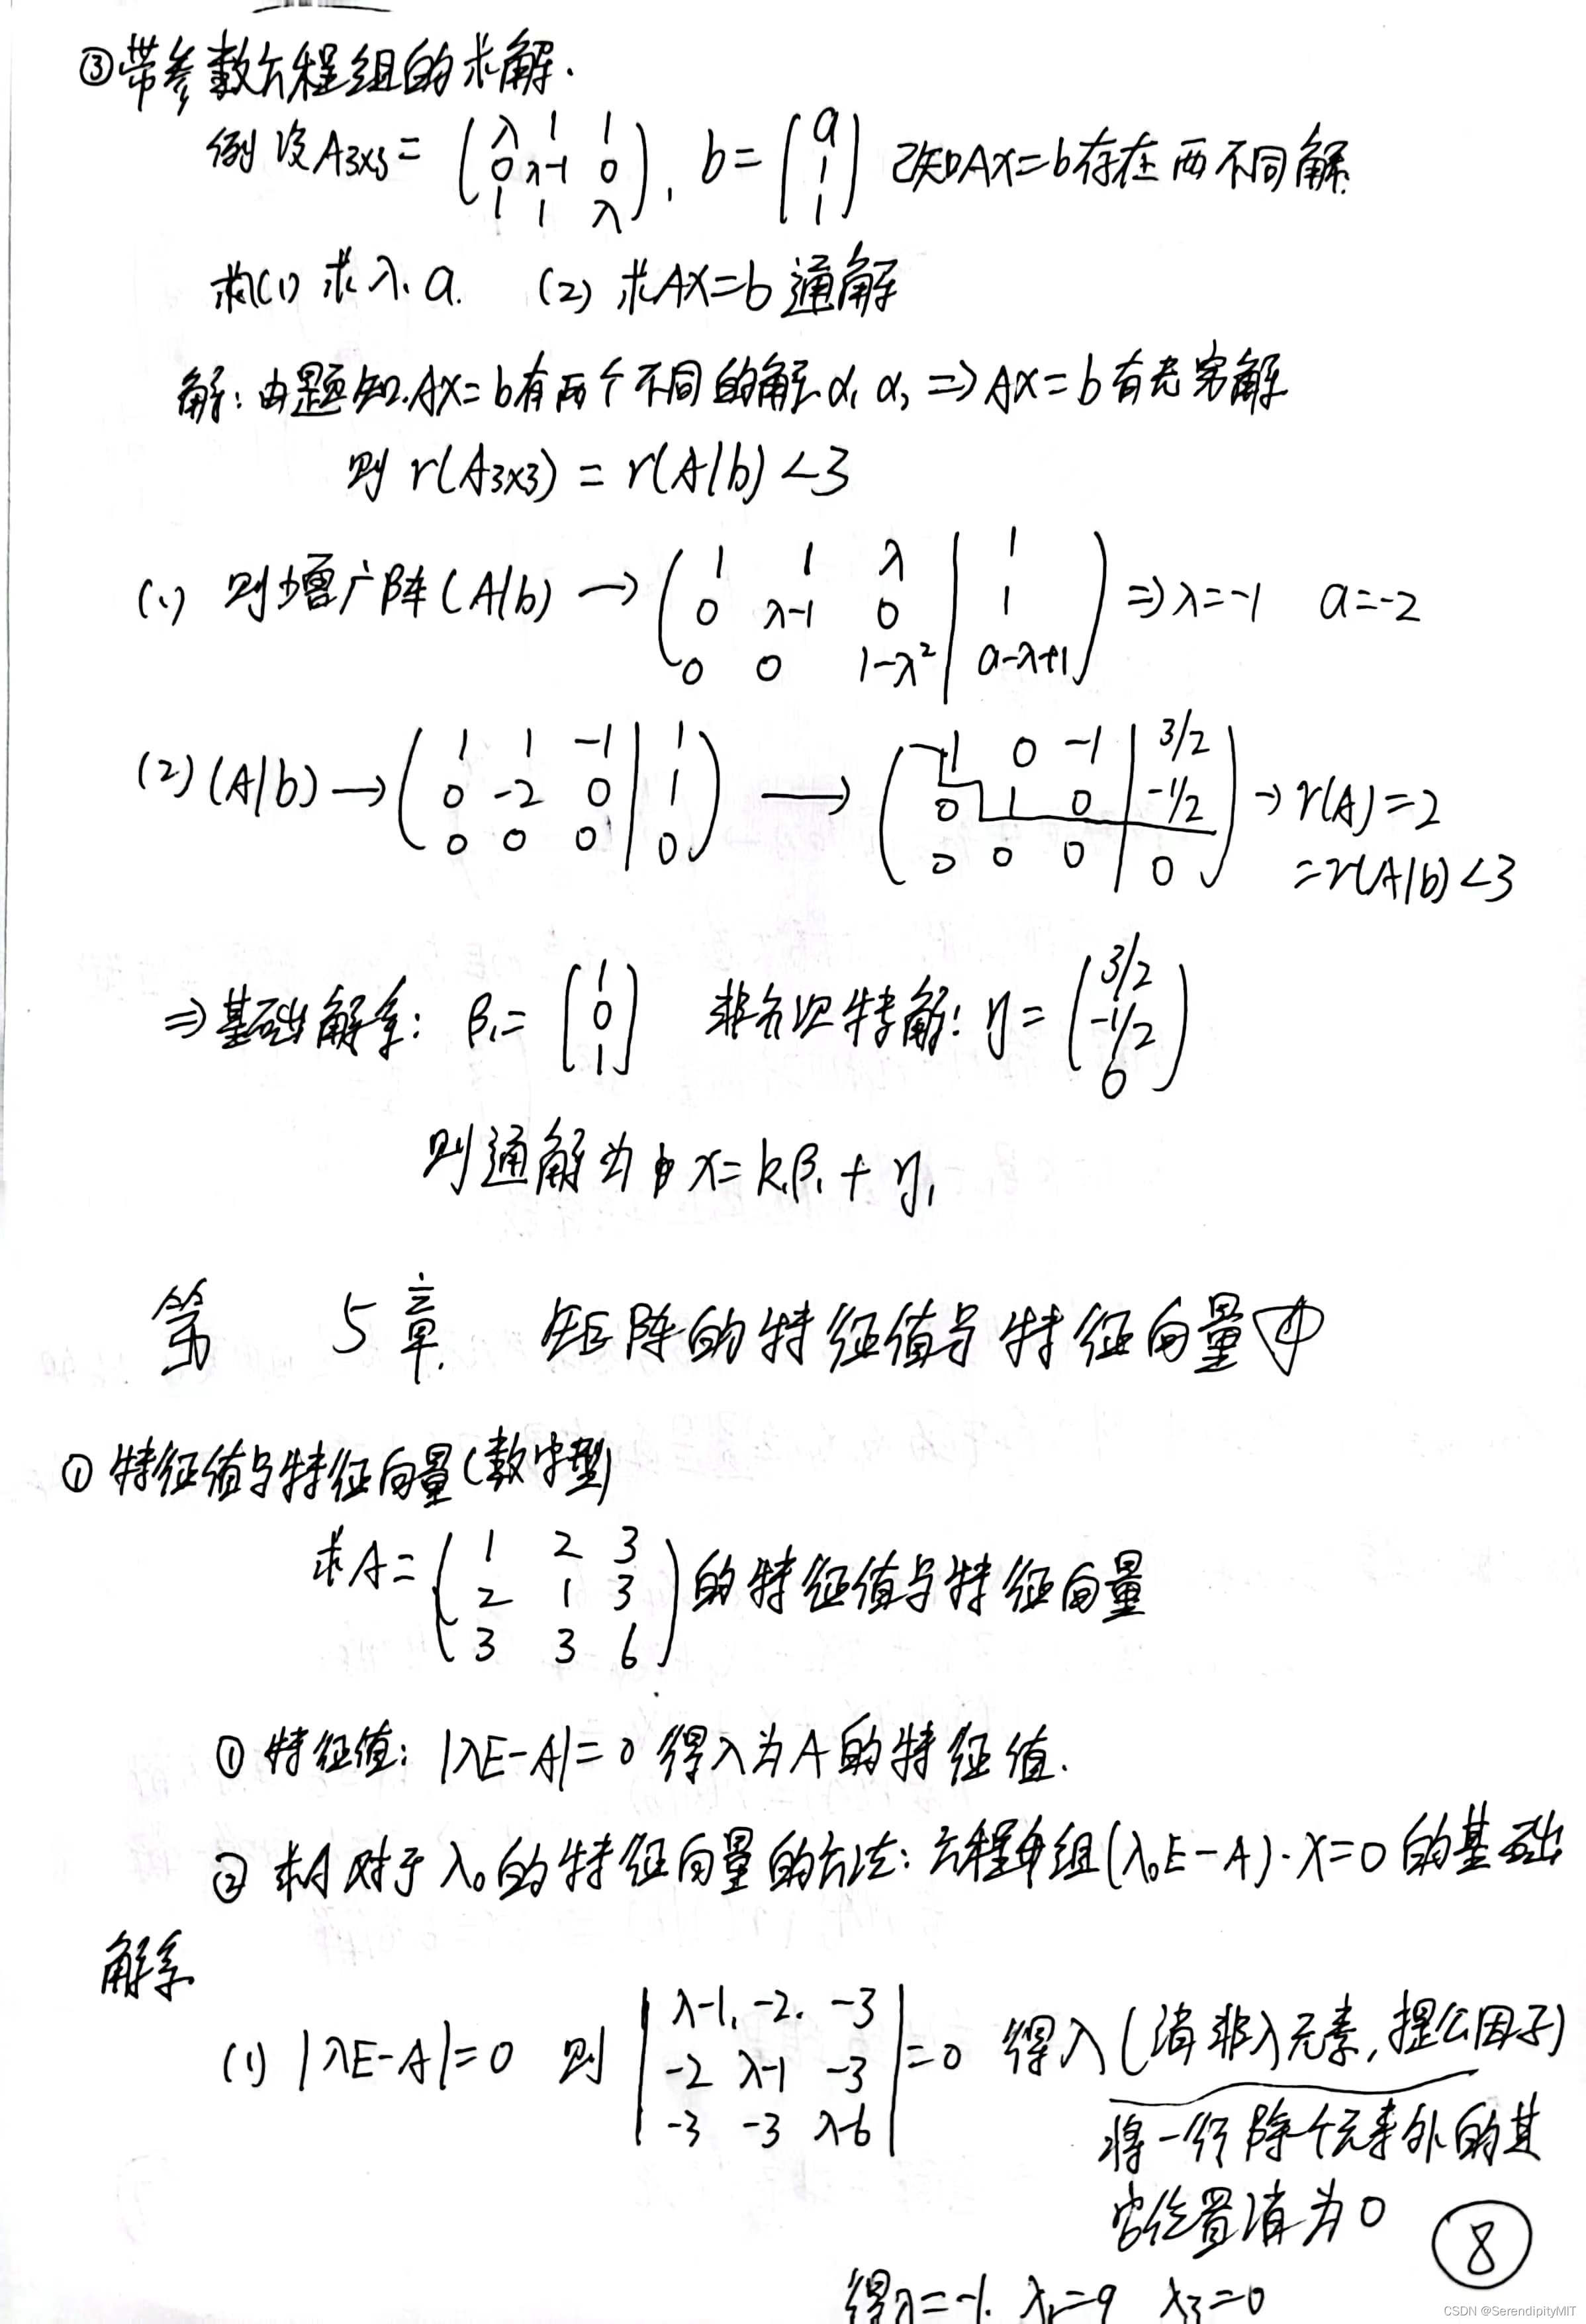 ③带参数方程组的求解.
例 设A3x3= (λ 1 1
0 λ-1 0
1 1 λ), b= (a
1
1) 已知AX=b存在两不同解
求(1) 求λ. a. (2) 求AX=b通解
解: 由题知.AX=b有两个不同的解α₁ α₂ ⇒ AX=b有无穷解
则 r(A3x3) = r(A|b) <3
(1) 则增广阵(A|b) → (1 1 λ | 1
0 λ-1 0 | 1
0 0 1-λ² | a-λ+1) ⇒ λ=-1 a=-2
(2) (A|b) → (1 1 -1 | 1
0 -2 0 | 1
0 0 0 | 0) → (1 0 -1 | 3/2
0 1 0 | -1/2
0 0 0 | 0) → r(A)=2
=r(A|b)<3
⇒基础解系: β₁= (1
0
1) 非齐次特解: η= (3/2
-1/2
0)
则通解为 x=k₁β₁+η₁
第 5章. 矩阵的特征值与特征向量
① 特征值与特征向量(数字型)
求A= (1 2 3
2 1 3
3 3 6) 的特征值与特征向量
① 特征值: |λE-A|=0 得λ为A的特征值.
② 求A对于λ₀的特征向量的方法: 方程组(λ₀E-A)·X=0的基础
解系
(1) |λE-A|=0 则 |λ-1, -2. -3
-2 λ-1 -3
-3 -3 λ-6|=0 得λ(消非λ元素,提公因子)
将一行除个元素外的其
它位置消为0
得λ=-1. λ₂=9 λ3=0
⑧
CSDN @SerendipityMIT